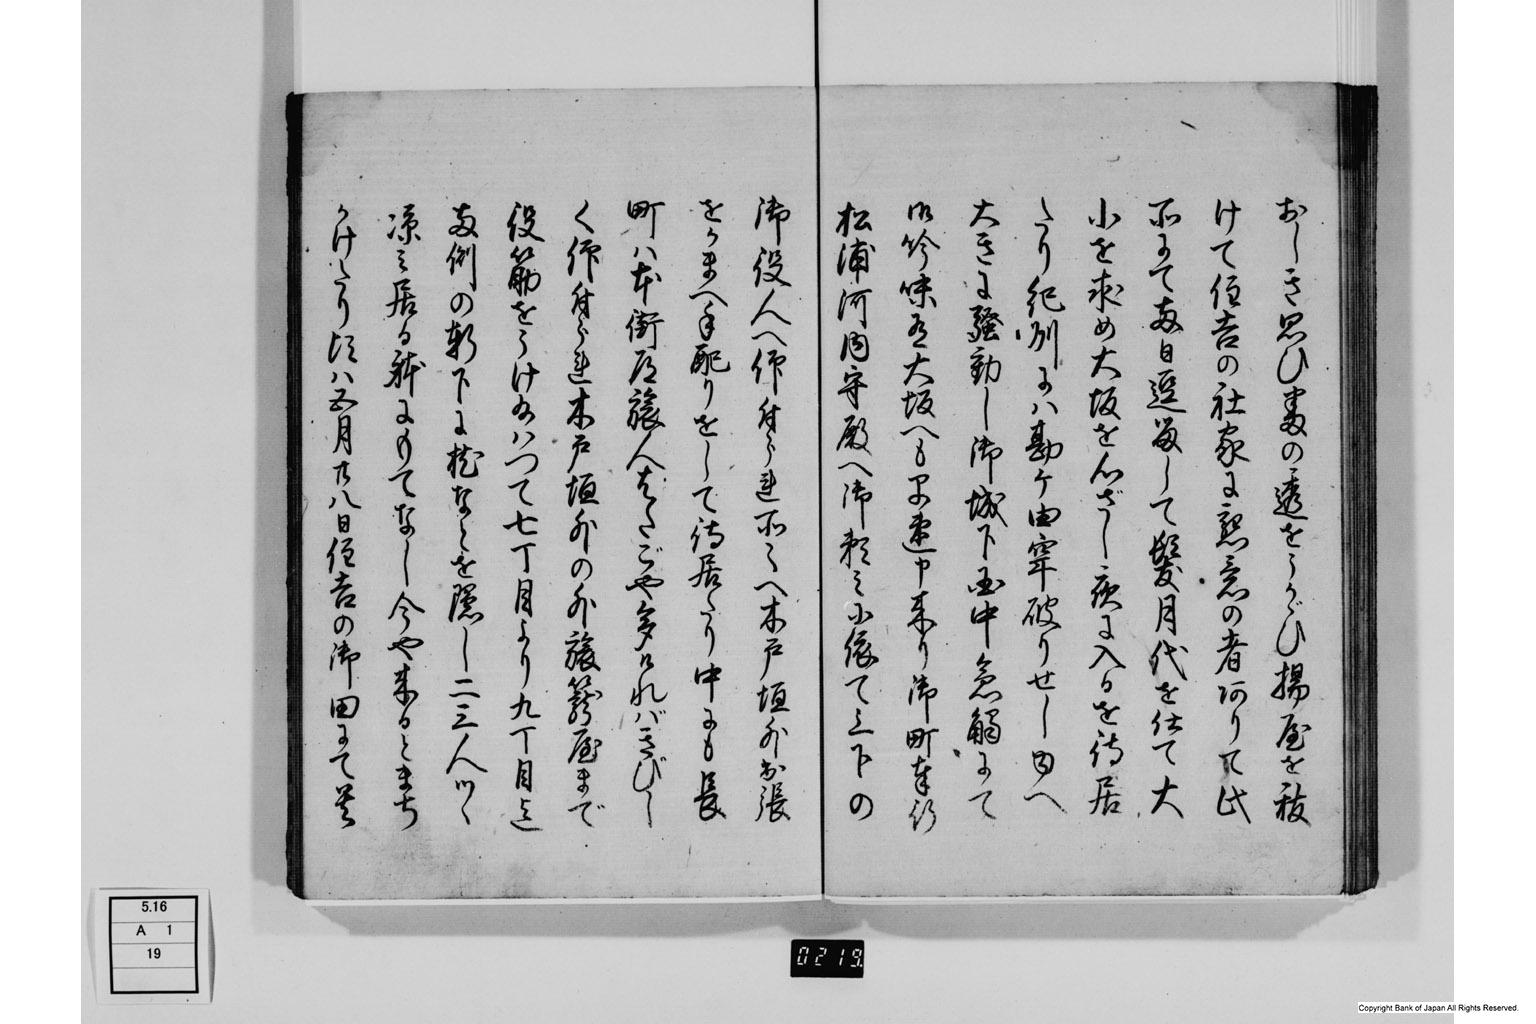 おしき思ひ番の透をうかゞひ揚屋を抜
けて住吉の社家に懇意の者ありて此
所にて両日逗留して髪月代を仕て大
小を求め大坂を心ざし夜に入るを待居
たり紀州には勘ケ由牢破りせし由へ
大きに騒動し御城下国中急触にて
御吟味有大坂へも早速申来り御町奉行
松浦河内守殿へ御頼に依て三下の
御役人へ仰付られ所々へ木戸垣外出張
をかまへ手配りをして待居たり中にも長
町は本街道旅人はたごや多ければきびし
く仰付られ木戸垣外の外旅籠屋まで
役筋をうけ給はつて七丁目より九丁目迄
両側の軒下に枕ならを隠し二三人ツヽ
凉み居る躰にもてなし今や来るとまち
かけたり頃は五月廿八日住吉の御田にて
5.16
A 1
19
0219
Copyright Bank of Japan All Rights Reserved.